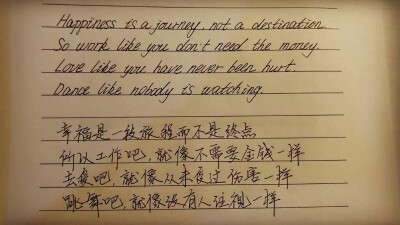 Happiness is a journey, not a destination.
So work like you don't need the money.
Love like you have never been hurt.
Dance like nobody is watching.
幸福是一段旅程而不是终点
所以工作吧,就像不需要金钱一样
去爱吧,就像从未受过伤害一样
跳舞吧,就像没有人注视一样